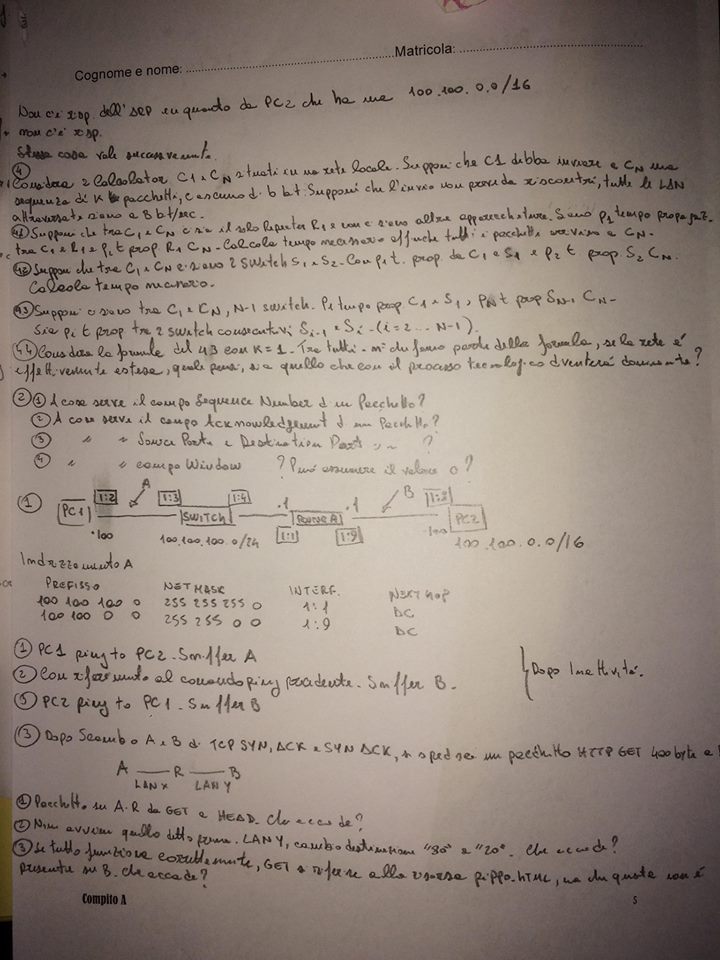 Cognome e nome: Matricola:
Non c'è risp. dell'ARP in quanto da PC2 che ha una 100.100.0.0/16
non c'è risp.
Stessa cosa vale successivamente.
4
Considera 2 Calcolatori C1 e CN situati in una rete locale. Supponi che C1 debba inviare a CN una
sequenza di K pacchetti, ciascuno di b bit. Supponi che l'invio non preveda riscontri, tutte le LAN
attraversate siano a B bit/sec.
4.1 Supponi che tra C1 e CN ci sia il solo Repeater R1 e non ci siano altre apparecchiature. Siano p1 tempo propagaz.
tra C1 e R1 e p2 t prop. R1 CN. Calcola tempo necessario affinché tutti i pacchetti arrivino a CN.
4.2 Supponi che tra C1 e CN ci siano 2 switch S1 e S2. Con p1 t. prop. da C1 e S1 e p2 t. prop. S2 CN.
Calcola tempo necessario.
4.3 Supponi ci siano tra C1 e CN, N-1 switch. P1 tempo prop C1 e S1, PN t prop SN-1 CN.
Sia pi t prop tra 2 switch consecutivi Si-1 e Si (i=2... N-1).
4.4 Considera la formula del 4.3 con K=1. Tra tutti i n° che fanno parte della formula, se la rete è
effettivamente estesa, quale pensi, sia quello che con il processo tecnologico diventerà dominante?
2 1 A cosa serve il campo Sequence Number di un Pacchetto?
2 A cosa serve il campo Acknowledgement di un Pacchetto?
3 " " Source Port e Destination Port " ~ ?
4 " " campo Window ? Può assumere il valore 0?
1 PC1 1:2 A 1:3 SWITCH 1:4 .1 1:1 ROUTER .1 1:9 B 1:8 PC2
.100 100.100.100.0/24 .100 100.100.0.0/16
Indirizzamento A
PREFISSO NETMASK INTERF. NEXT HOP
100 100 100 0 255 255 255 0 1:1 DC
100 100 0 0 255 255 0 0 1:9 DC
1 PC1 ping to PC2. Sniffer A
2 Con riferimento al comando ping precedente. Sniffer B.
5 PC2 ping to PC1. Sniffer B
Dopo Inattività.
3 Dopo Scambio A e B di TCP SYN, ACK e SYN ACK, si spedisce un pacchetto HTTP GET 400 byte a
A — R — B
LAN X LAN Y
1 Pacchetto su A-R da GET a HEAD. Che accade?
2 Non avviene quello detto prima. LAN Y, cambio destinazione "80" a "20". Che accade?
3 Se tutto funziona correttamente, GET si riferisce alla risorsa pippo.HTML, ma che questa non è
presente su B. Che accade?
Compito A 5